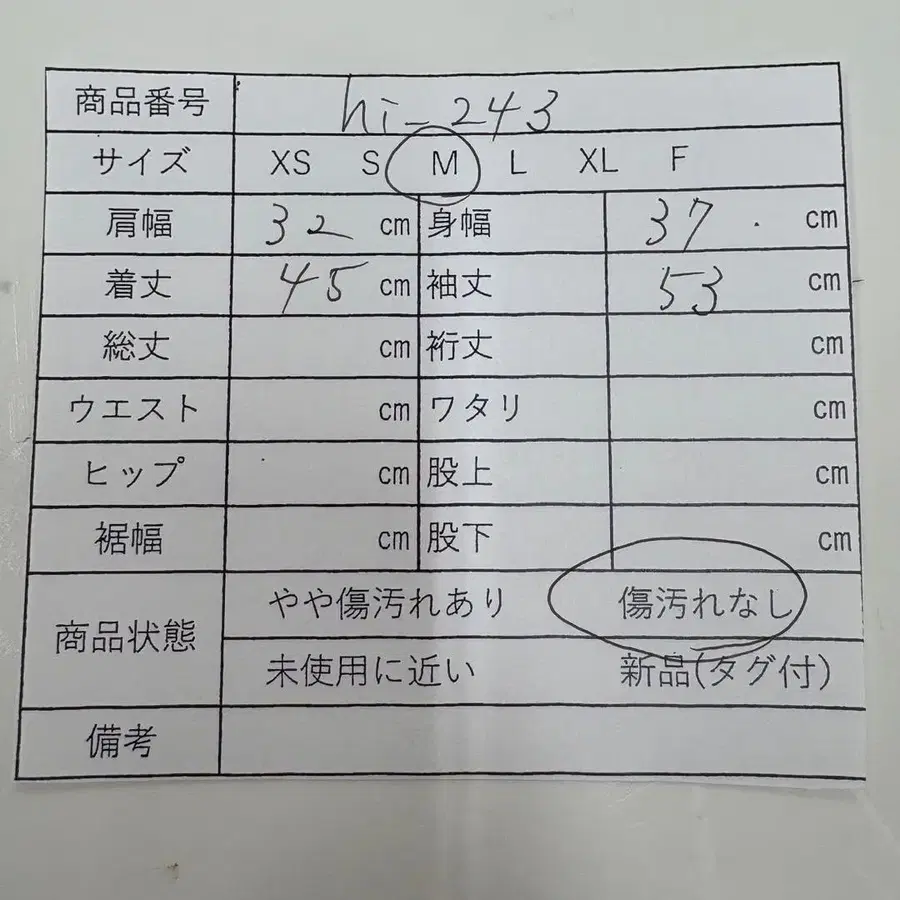 商品番号 hi-243
サイズ XS S M L XL F
肩幅 32 cm 身幅 37 cm
着丈 45 cm 袖丈 53 cm
総丈 cm 裄丈 cm
ウエスト cm ワタリ cm
ヒップ cm 股上 cm
裾幅 cm 股下 cm
商品状態 やや傷汚れあり 傷汚れなし
未使用に近い 新品(タグ付)
備考